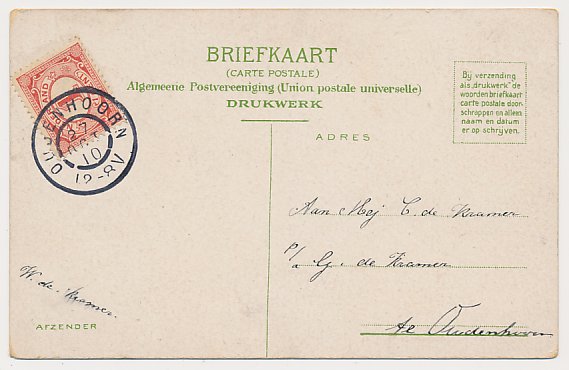 BRIEFKAART
(CARTE POSTALE)
Algemeene Postvereeniging (Union postale universelle)
DRUKWERK
Bij verzending
als „drukwerk” de
woorden briefkaart
carte postale door-
schrappen en alleen
naam en datum
er op schrijven.
OUDENHOORN
10
12-8V
ADRES
Aan Mej C. de Kramer
p/a G. de Kramer
te Oudenhoorn
W. de Kramer.
AFZENDER